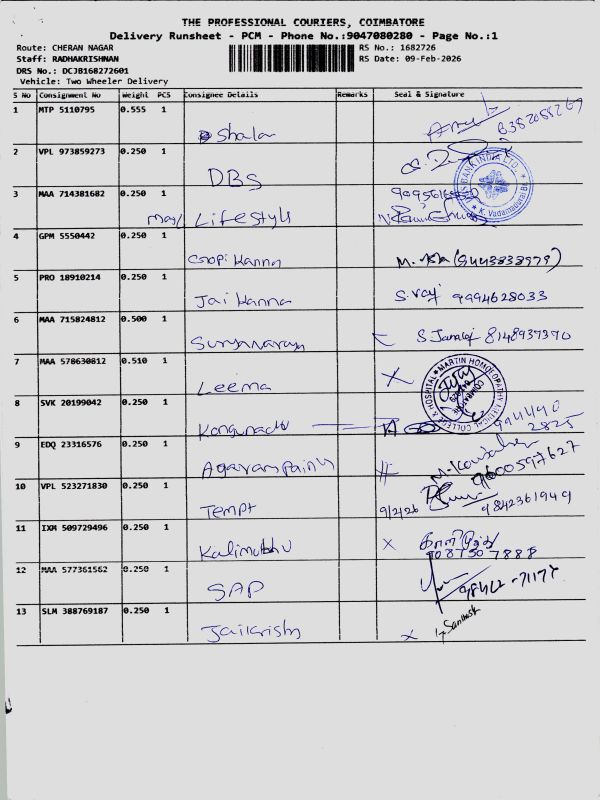 THE PROFESSIONAL COURIERS, COIMBATORE
Delivery Runsheet - PCM - Phone No.:9047080280 - Page No.:1
Route: CHERAN NAGAR
RS No.: 1682726
Staff: RADHAKRISHNAN
RS Date: 09-Feb-2026
DRS No.: DCJB168272601
Vehicle: Two Wheeler Delivery
S No Consignment No Weight PCS Consignee Details Remarks Seal & Signature
1 MTP 5110795 0.555 1
Shalar
2 VPL 973859273 0.250 1
DBS
3 MAA 714381682 0.250 1
Lifestyle
4 GPM 5550442 0.250 1
Gopi Kanna
5 PRO 18910214 0.250 1
Jai Kanna S. raj 9994628033
6 MAA 715824812 0.500 1
Suryanaraya 8148939390
7 MAA 578630812 0.510 1
Leema
MARTIN HOMOEOPATHY MEDICAL COLLEGE & HOSPITAL
8 SVK 20199042 0.250 1
9 EDQ 23316576 0.250 1
9600597627
10 VPL 523271830 0.250 1
Tempt 9/2/26 9842361949
11 IXM 509729496 0.250 1
Kalimuthu
12 MAA 577361562 0.250 1
SAP
13 SLM 388769187 0.250 1
Jaikrishn